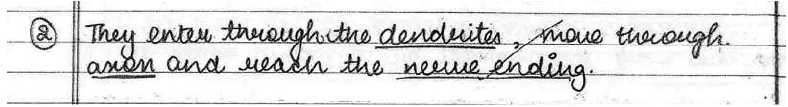 ② They enter through the dendrites, move through
axon and reach the nerve ending.